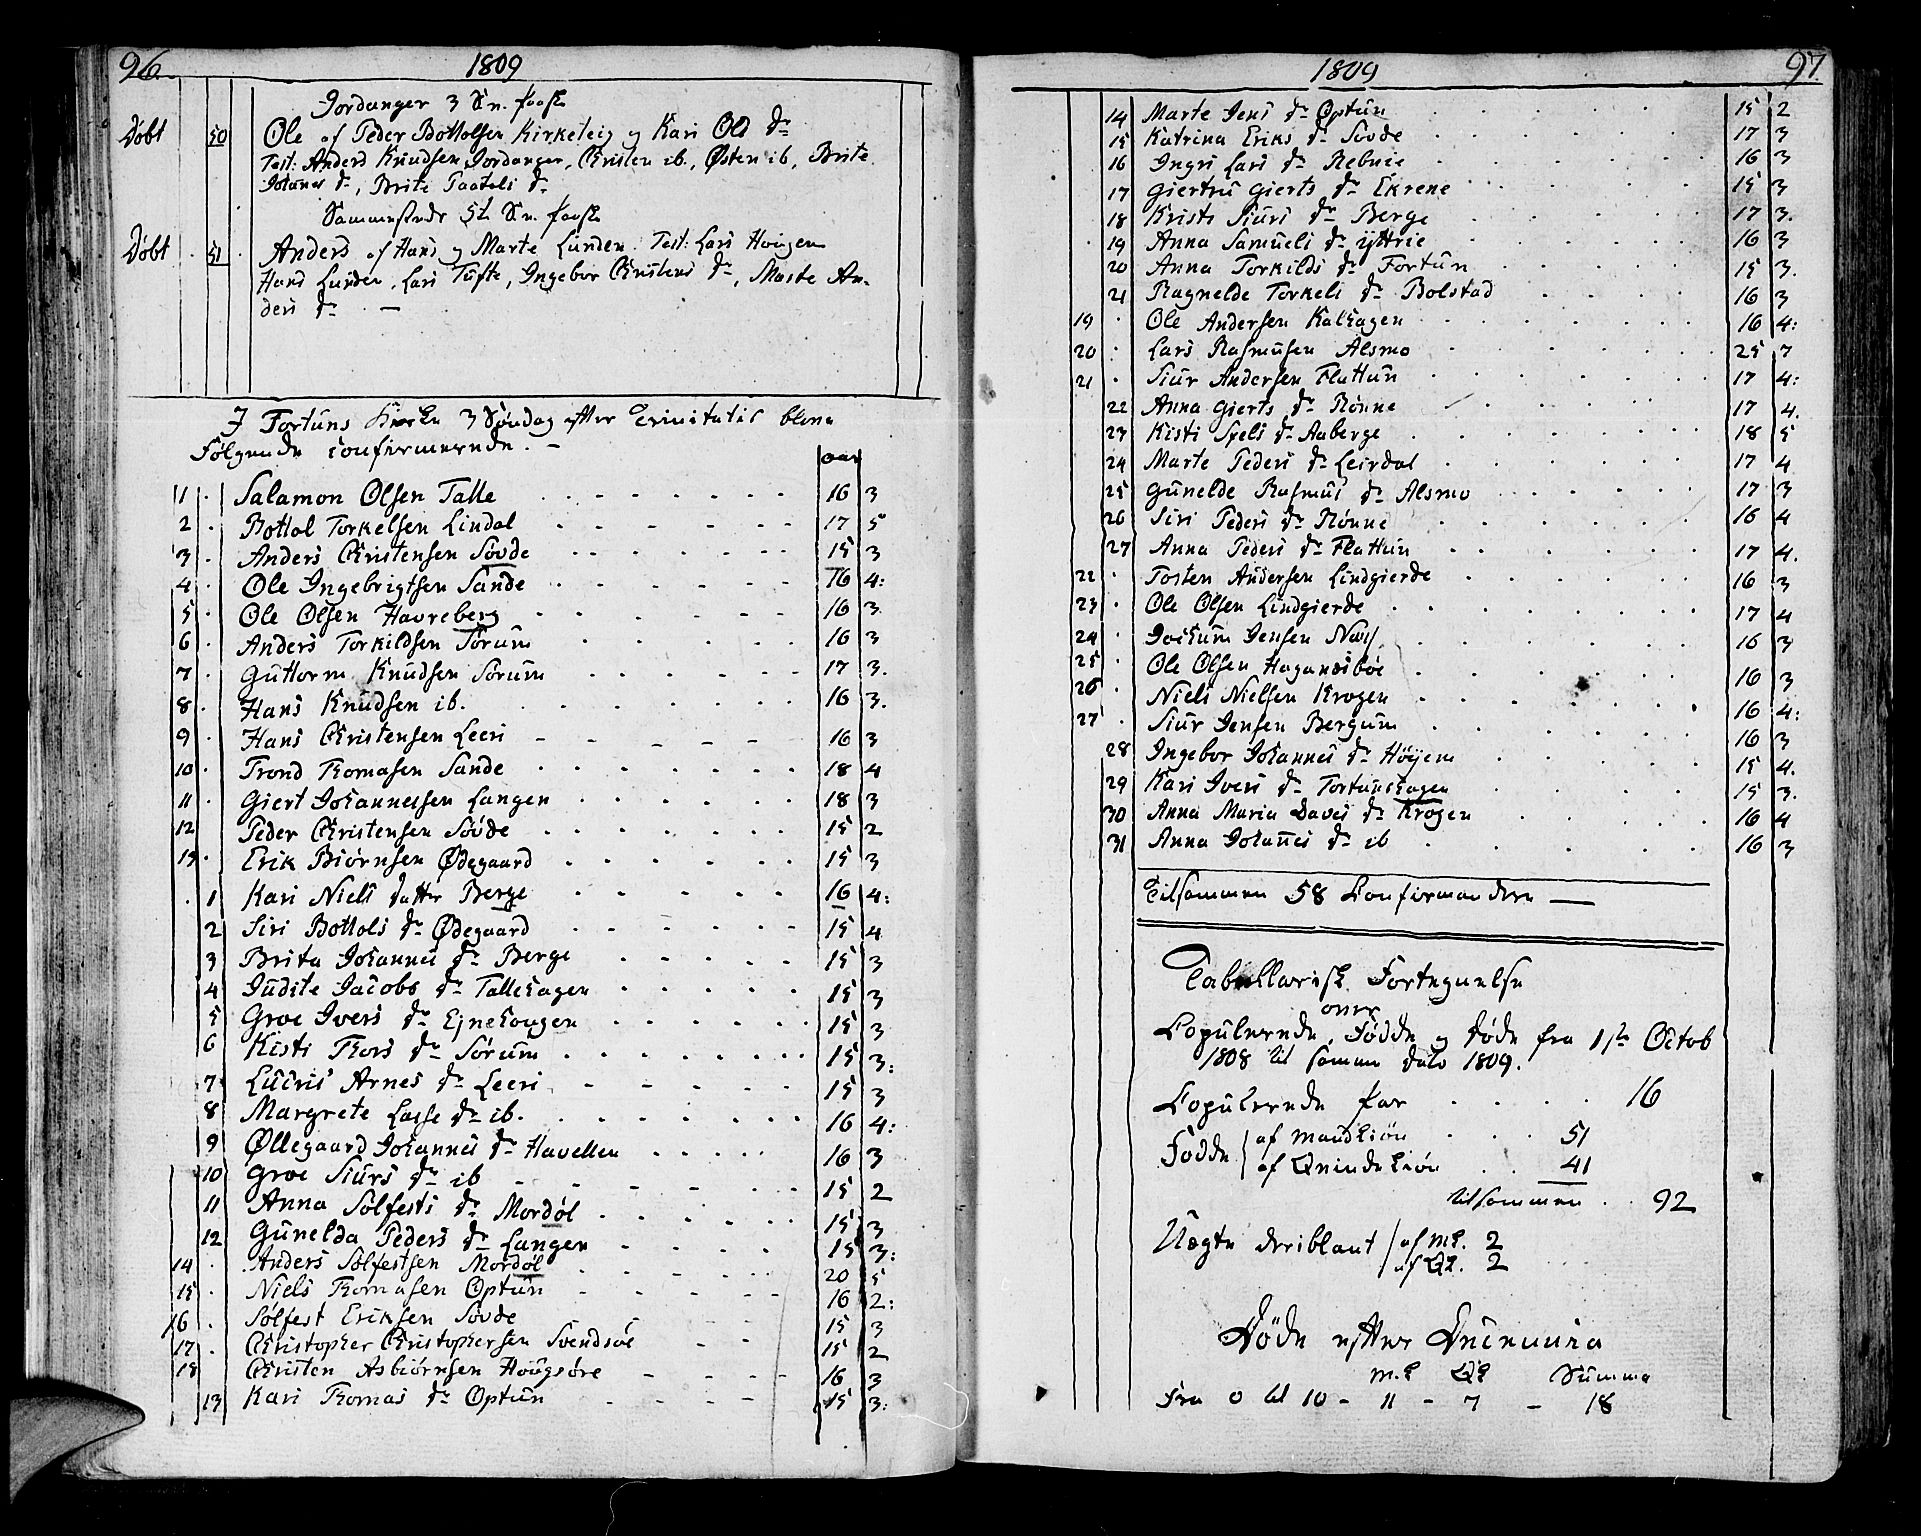 96
1809
Jordanger 3 Sn. paaske
Døbt 50 Ole af Peder Bottolsen Kirketeig og Kari Ols dr
Test: Anders Knudsen Jordanger, Christen ib., Østen ib, Brite
Johans dr, Brite Taatels dr
Sammesteds 5te Sn. paaske
Døbt 51 Anders af Hans og Marte Lunden Test: Lars Hougen
Hans Lunden, Lars Tufte, Ingebor Christens dr, Marte An-
ders dr —
I Fortuns Kirke 3 Søndag efter Trinitatis bleve
følgende confirmerede. —
aar
1 Salamon Olsen Talle 16 3
2 Bottol Torkelsen Lindal 17 5
3 Anders Christensen Søvde 15 3
4 Ole Ingebrigtsen Sande 16 4:
5 Ole Olsen Havreberg 16 3
6 Anders Torkildsen Sørum 16 3
7 Guttorm Knudsen Sørum 17 3.
8 Hans Knudsen ib. 16 3.
9 Hans Christensen Leeri 16 3
10 Trond Thomasen Sande 18 4
11 Giert Johannessen Langen 18 3
12 Peder Christensen Søvde 15 2
13 Erik Biørnsen Ødegaard 15 3
1 Kari Niels datter Berge 16 4:
2 Siri Bottols dr Ødegaard 15 4
3 Brita Johannes dr Berge 15 3
4 Judite Jacobs dr Tallehagen 15 3
5 Groe Ivers dr Ejnehougen 15 3
6 Kisti Thors dr Sørum 15 3:
7 Lucris Arnes dr Leeri 15 3
8 Margrete Lasse dr ib. 16 4:
9 Øllegaard Johannes dr Havellen 16 3
10 Groe Siurs dr ib 15 2
11 Anna Sølfests dr Mordøl 15 3
12 Gunelda Peders dr Langen 15 3:
14 Anders Sølfestsen Mordøl 20 5
15 Niels Thomasen Optun 16 2:
16 Sølfest Eriksen Søvde 15 3
17 Christopher Christophersen Svendsøe 15 2
18 Christen Asbiørnsen Hougsøre 16 3
13 Kari Thomas dr Optun 15 3:
1809
97
14 Marte Jens dr Optun 15 2
15 Katrina Eriks dr Søvde 17 3
16 Ingri Lars dr Rebnie 16 3
17 Giertru Gierts dr Ekrene 15 3
18 Kristi Siurs dr Berge 17 3.
19 Anna Samuels dr Yttrie 16 3
20 Anna Torkilds dr Fortun 15 3.
21 Ragnelde Torkels dr Bolstad 16 3
19 Ole Andersen Kalhagen 16 4:
20 Lars Rasmusen Alsmo 25 7
21 Siur Andersen Flattun 17 4:
22 Anna Gierts dr Rønne 17 4.
23 Kisti Spels dr Aaberge 18 5
24 Marte Peders dr Leirdal 17 4
25 Gunelde Rasmus dr Alsmo 17 3
26 Siri Peders dr Rønne 16 4
27 Anna Peders dr Flattun 17 4.
22 Tosten Andersen Lindgierde 16 3
23 Ole Olsen Lindgierde 17 4
24 Jochum Jensen Næs 16 3
25 Ole Olsen Hagansbøe 16 3
26 Niels Nielsen Krogen 16 4:
27 Siur Jensen Bergum 16 3
28 Ingebor Johannes dr Høyem 15 4.
29 Kari Ivers dr Fortunshagen 15 3.
30 Anna Maria Daves dr Krogen 16 4
31 Anna Johannes dr ib 16 3
Tilsammen 58 Confirmandere —
Tabellarisk Fortegnelse
over
Copulerede, Fødde og døde fra 1ste Octob
1808 til samme dato 1809.
Copulerede par 16
Fødde af Mandkiøn 51
af Qvindekiøn 41
tilsammen 92
Uægte deriblant af Mk. 2
af Qk. 2
Døde efter Decennia
M.k Qk Summa
Fra 0 til 10 - 11 - 7 - 18